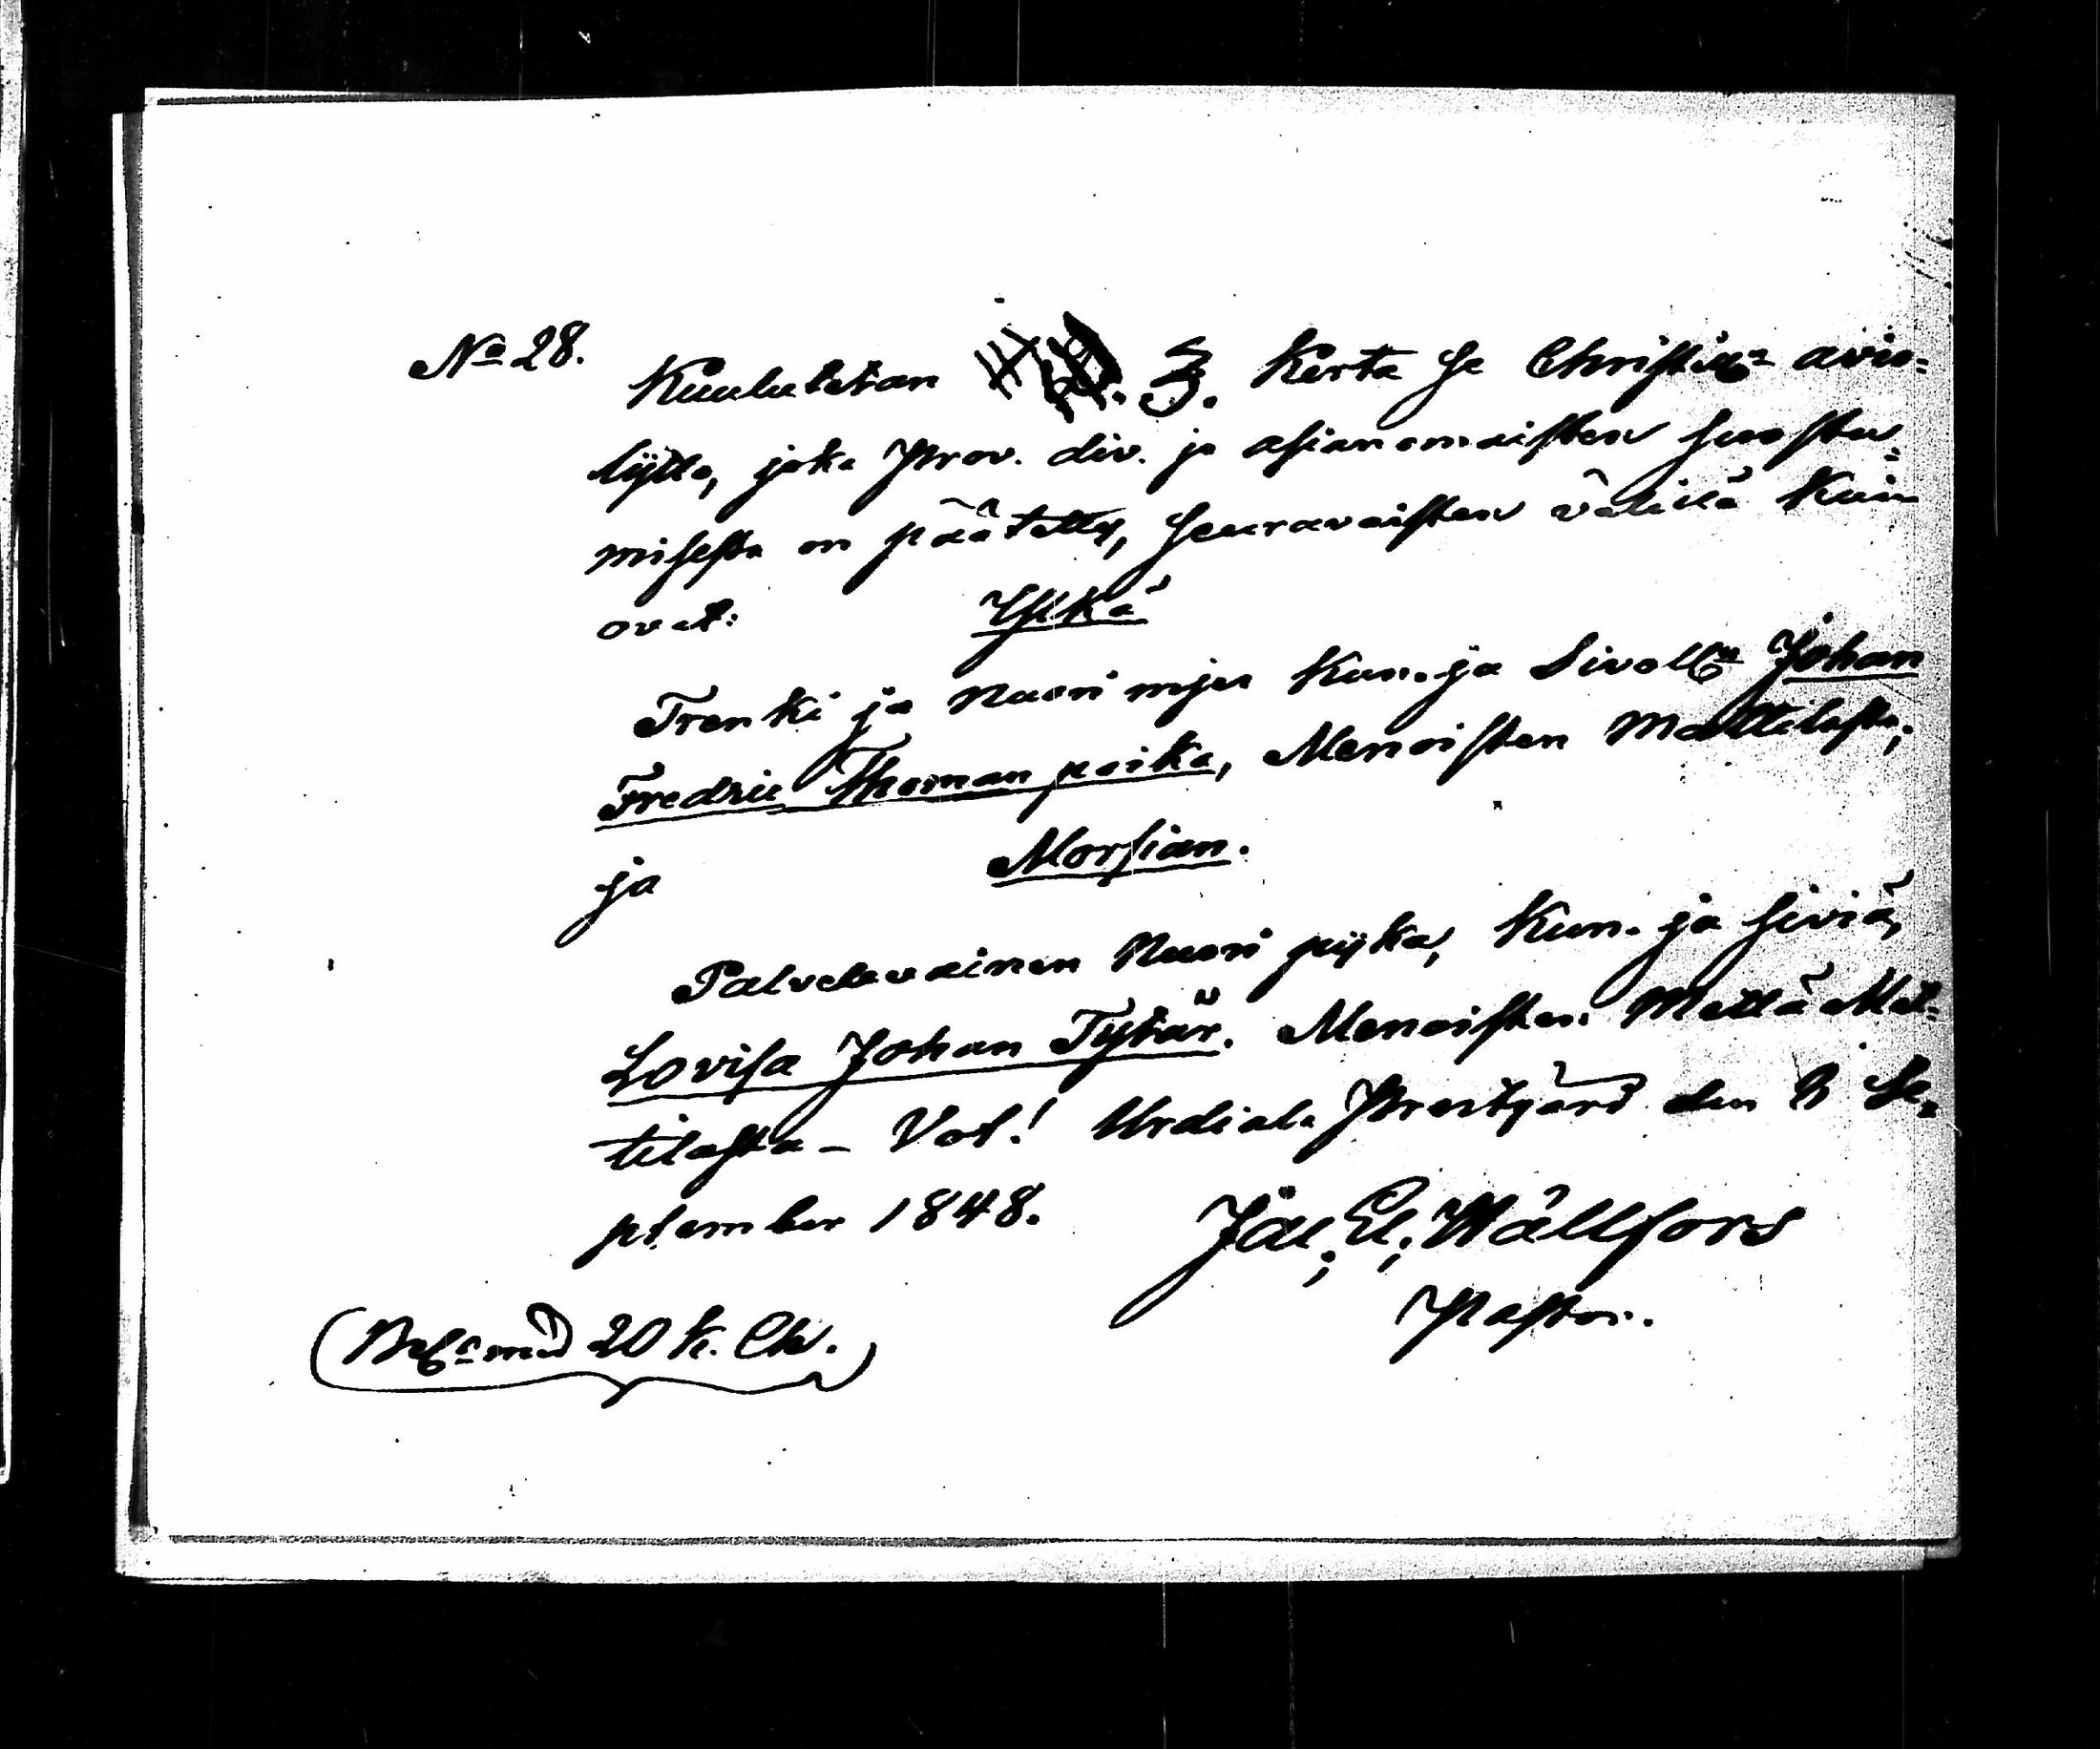 No 28. Kuulutetan 3. Kerta se Christi:n avio-
kytto, joka Prov. div. ja asianomaisten suostu-
misesta on päätetty, seuravaisten välillä Kuin
ovat: Ylkä
Trenki ja Nuori mjes Kun. ja Sivoll:n Johan
Fredric Thoman poika, Menoisten Mattilasta;
ja Morsian.
Palvelevainen Nuori pijka, Kun. ja siviä,
Lovisa Johan Tytär. Menoisten Mellä Mat-
tilasta – Urdiala Prestgård den 8 Se-
ptember 1848. Jac; El; Wållfors
Pastor.
med 20 k.